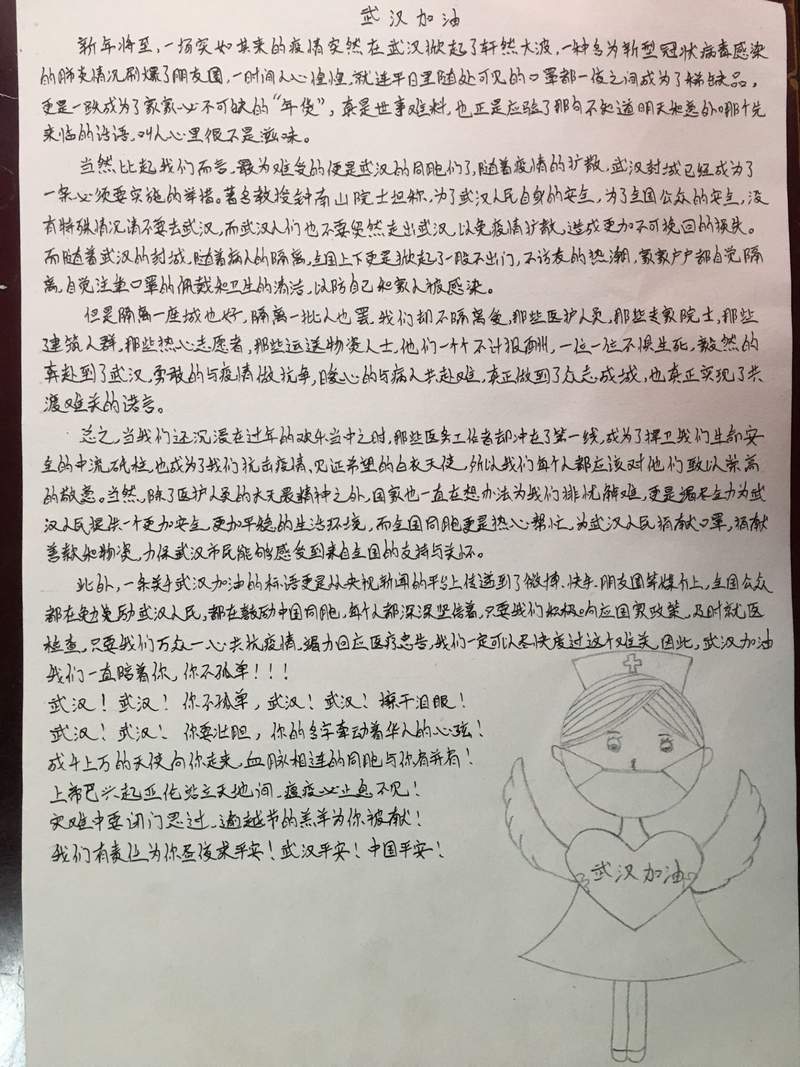 武汉加油
新年将至，一场突如其来的疫情突然在武汉掀起了轩然大波，一种名为新型冠状病毒感染
的肺炎情况刷爆了朋友圈，一时间人心惶惶，就连平日里随处可见的口罩都一夜之间成为了稀缺品，
更是一跃成为了家家必不可缺的“年货”，真是世事难料，也正是应验了那句不知道明天和意外哪个先
来临的话语，叫人心里很不是滋味。
当然比起我们而言，最为难受的便是武汉的同胞们了，随着疫情的扩散，武汉封城已经成为了
一条必须要实施的举措。著名教授钟南山院士坦称，为了武汉人民自身的安全，为了全国公众的安全，没
有特殊情况请不要去武汉，而武汉人们也不要突然走出武汉，以免疫情扩散，造成更加不可挽回的损失。
而随着武汉的封城，随着病人的隔离，全国上下更是掀起了一股不出门，不访友的热潮，家家户户都自觉隔
离，自觉注重口罩的佩戴和卫生的清洁，以防自己和家人被感染。
但是隔离一座城也好，隔离一批人也罢，我们却不隔离爱，那些医护人员，那些专家院士，那些
建筑人群，那些热心志愿者，那些运送物资人士，他们一个个不计报酬，一位一位不惧生死，毅然的
奔赴到了武汉，勇敢的与疫情做抗争，暖心的与病人共赴难，真正做到了众志成城，也真正实现了共
渡难关的诺言。
总之，当我们还沉浸在过年的欢乐当中之时，那些医务工作者却冲在了第一线，成为了捍卫我们生命安
全的中流砥柱，也成为了我们抗击疫情、见证希望的白衣天使，所以我们每个人都应该对他们致以崇高
的敬意。当然，除了医护人员的大无畏精神之外，国家也一直在想办法为我们排忧解难，更是竭尽全力为武
汉人民提供一个更加安全，更加平稳的生活环境，而全国同胞更是热心帮忙，为武汉人民捐献口罩，捐献
善款和物资，力保武汉市民能够感受到来自全国的支持与关怀。
此外，一条关于武汉加油的标语更是从央视新闻的平台上传递到了微博、快手、朋友圈等媒介上，全国公众
都在勉励武汉人民，都在鼓励中国同胞，每个人都深深坚信着，只要我们积极响应国家政策，及时就医
检查，只要我们万众一心共抗疫情，竭力回应医疗忠告，我们一定可以尽快度过这个难关，因此，武汉加油
我们一直陪着你，你不孤单！！！
武汉！武汉！你不孤单，武汉！武汉！擦干泪眼！
武汉！武汉！ 你要壮胆，你的名字牵动着华人的心弦！
成千上万的天使向你走来，血脉相连的同胞与你肩并肩！
上帝已兴起亚伦站立天地间，瘟疫必止息不见！
灾难中要闭门思过，逾越节的羔羊为你被献！
我们有责任为你昼夜求平安！武汉平安！中国平安！
武汉加油